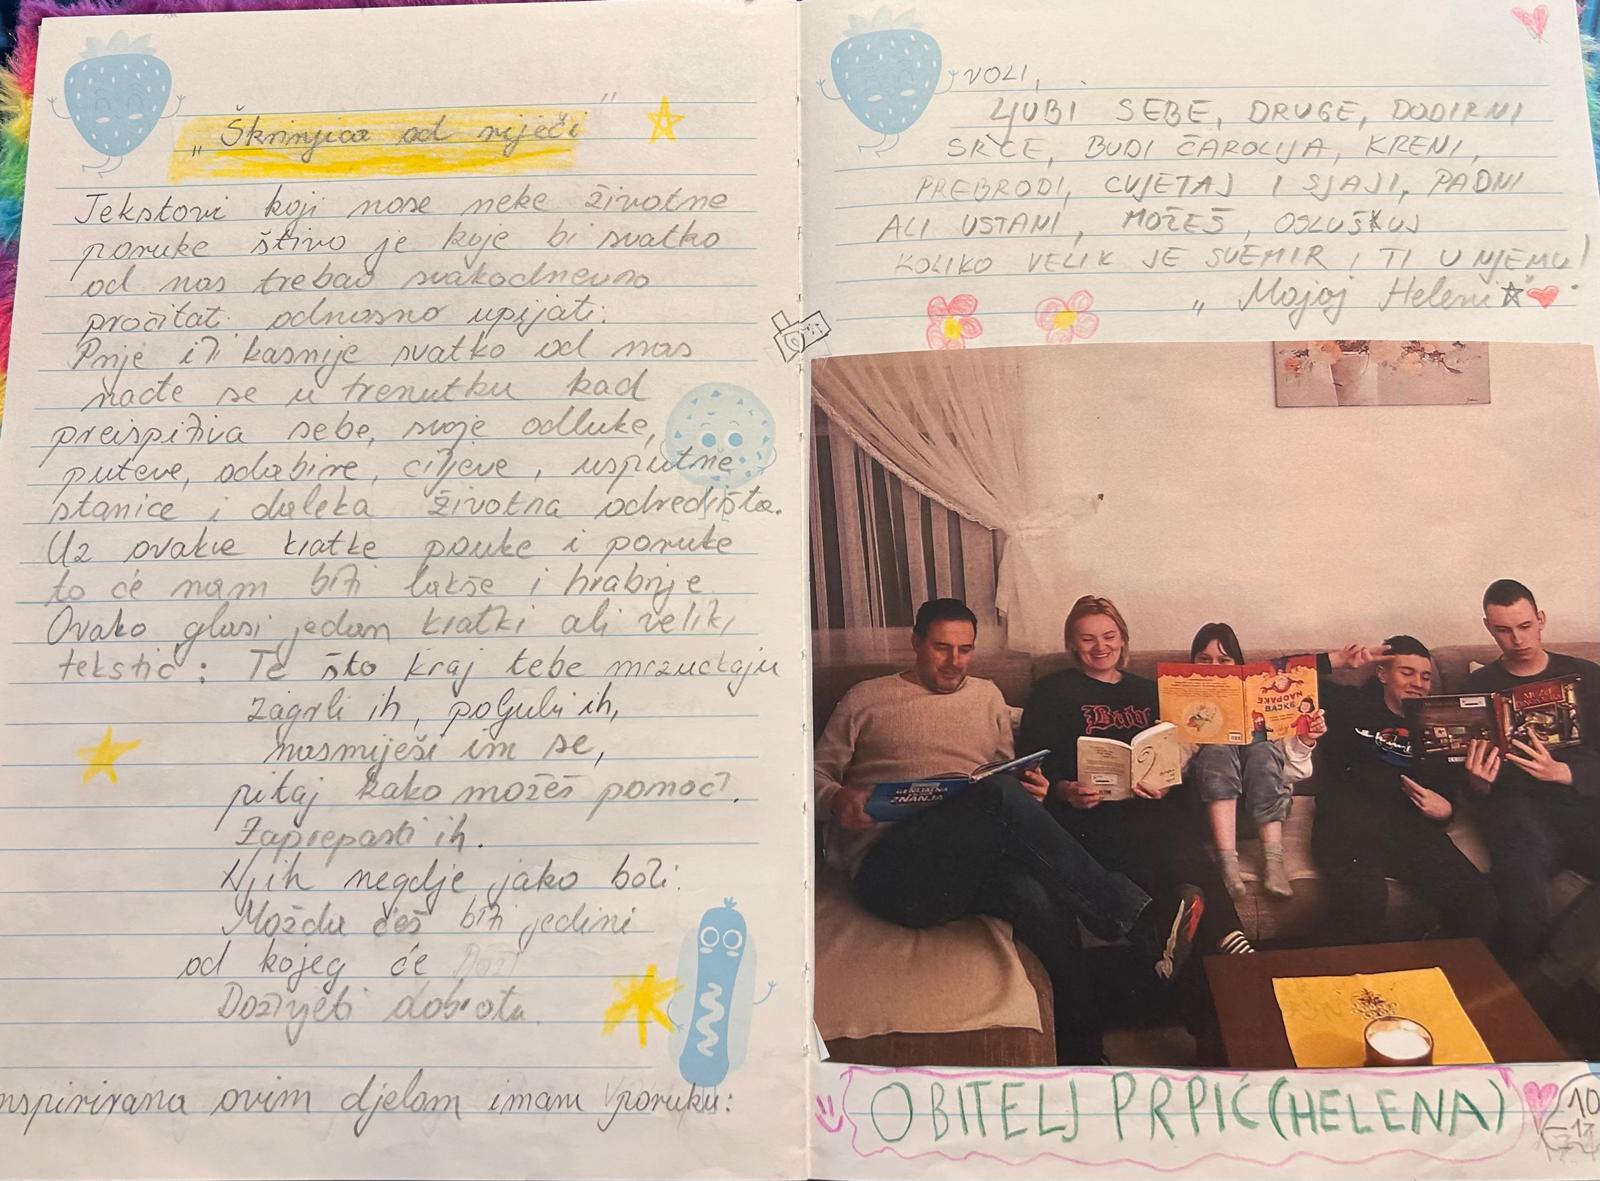 „Škrinjica od riječi"
Tekstovi koji nose neke životne
poruke štivo je koje bi svatko
od nas trebao svakodnevno
pročitati odnosno upijati.
Prije ili kasnije svatko od nas
nađe se u trenutku kad
preispitiva sebe, svoje odluke,
puteve, odabire, ciljeve, usputne
stanice i daleka životna odredišta.
Uz ovakve kratke pouke i poruke
to će nam biti lakše i hrabrije.
Ovako glasi jedan kratki ali veliki
tekstić: Te što kraj tebe mrzuckaju
zagrli ih, poljubi ih,
nasmiješi im se,
pitaj kako možeš pomoć?.
Zaprepasti ih.
Njih negdje jako boli.
Možda ćeš biti jedini
od kojeg će
Doživjeti dobrotu.
nspirirana ovim djelom imam poruku:
VOLI,
LJUBI SEBE, DRUGE, DODIRNI
SRCE, BUDI ČAROLIJA, KRENI,
PREBRODI, CVJETAJ I SJAJI, PADNI
ALI USTANI, MOŽEŠ, OSLUŠKUJ
KOLIKO VELIK JE SVEMIR I TI U NJEMU!
„Mojoj Heleni"
GENIJALNA
ZNANJA
NAOPAKE
BAJKE
OBITELJ PRPIĆ (HELENA)
10